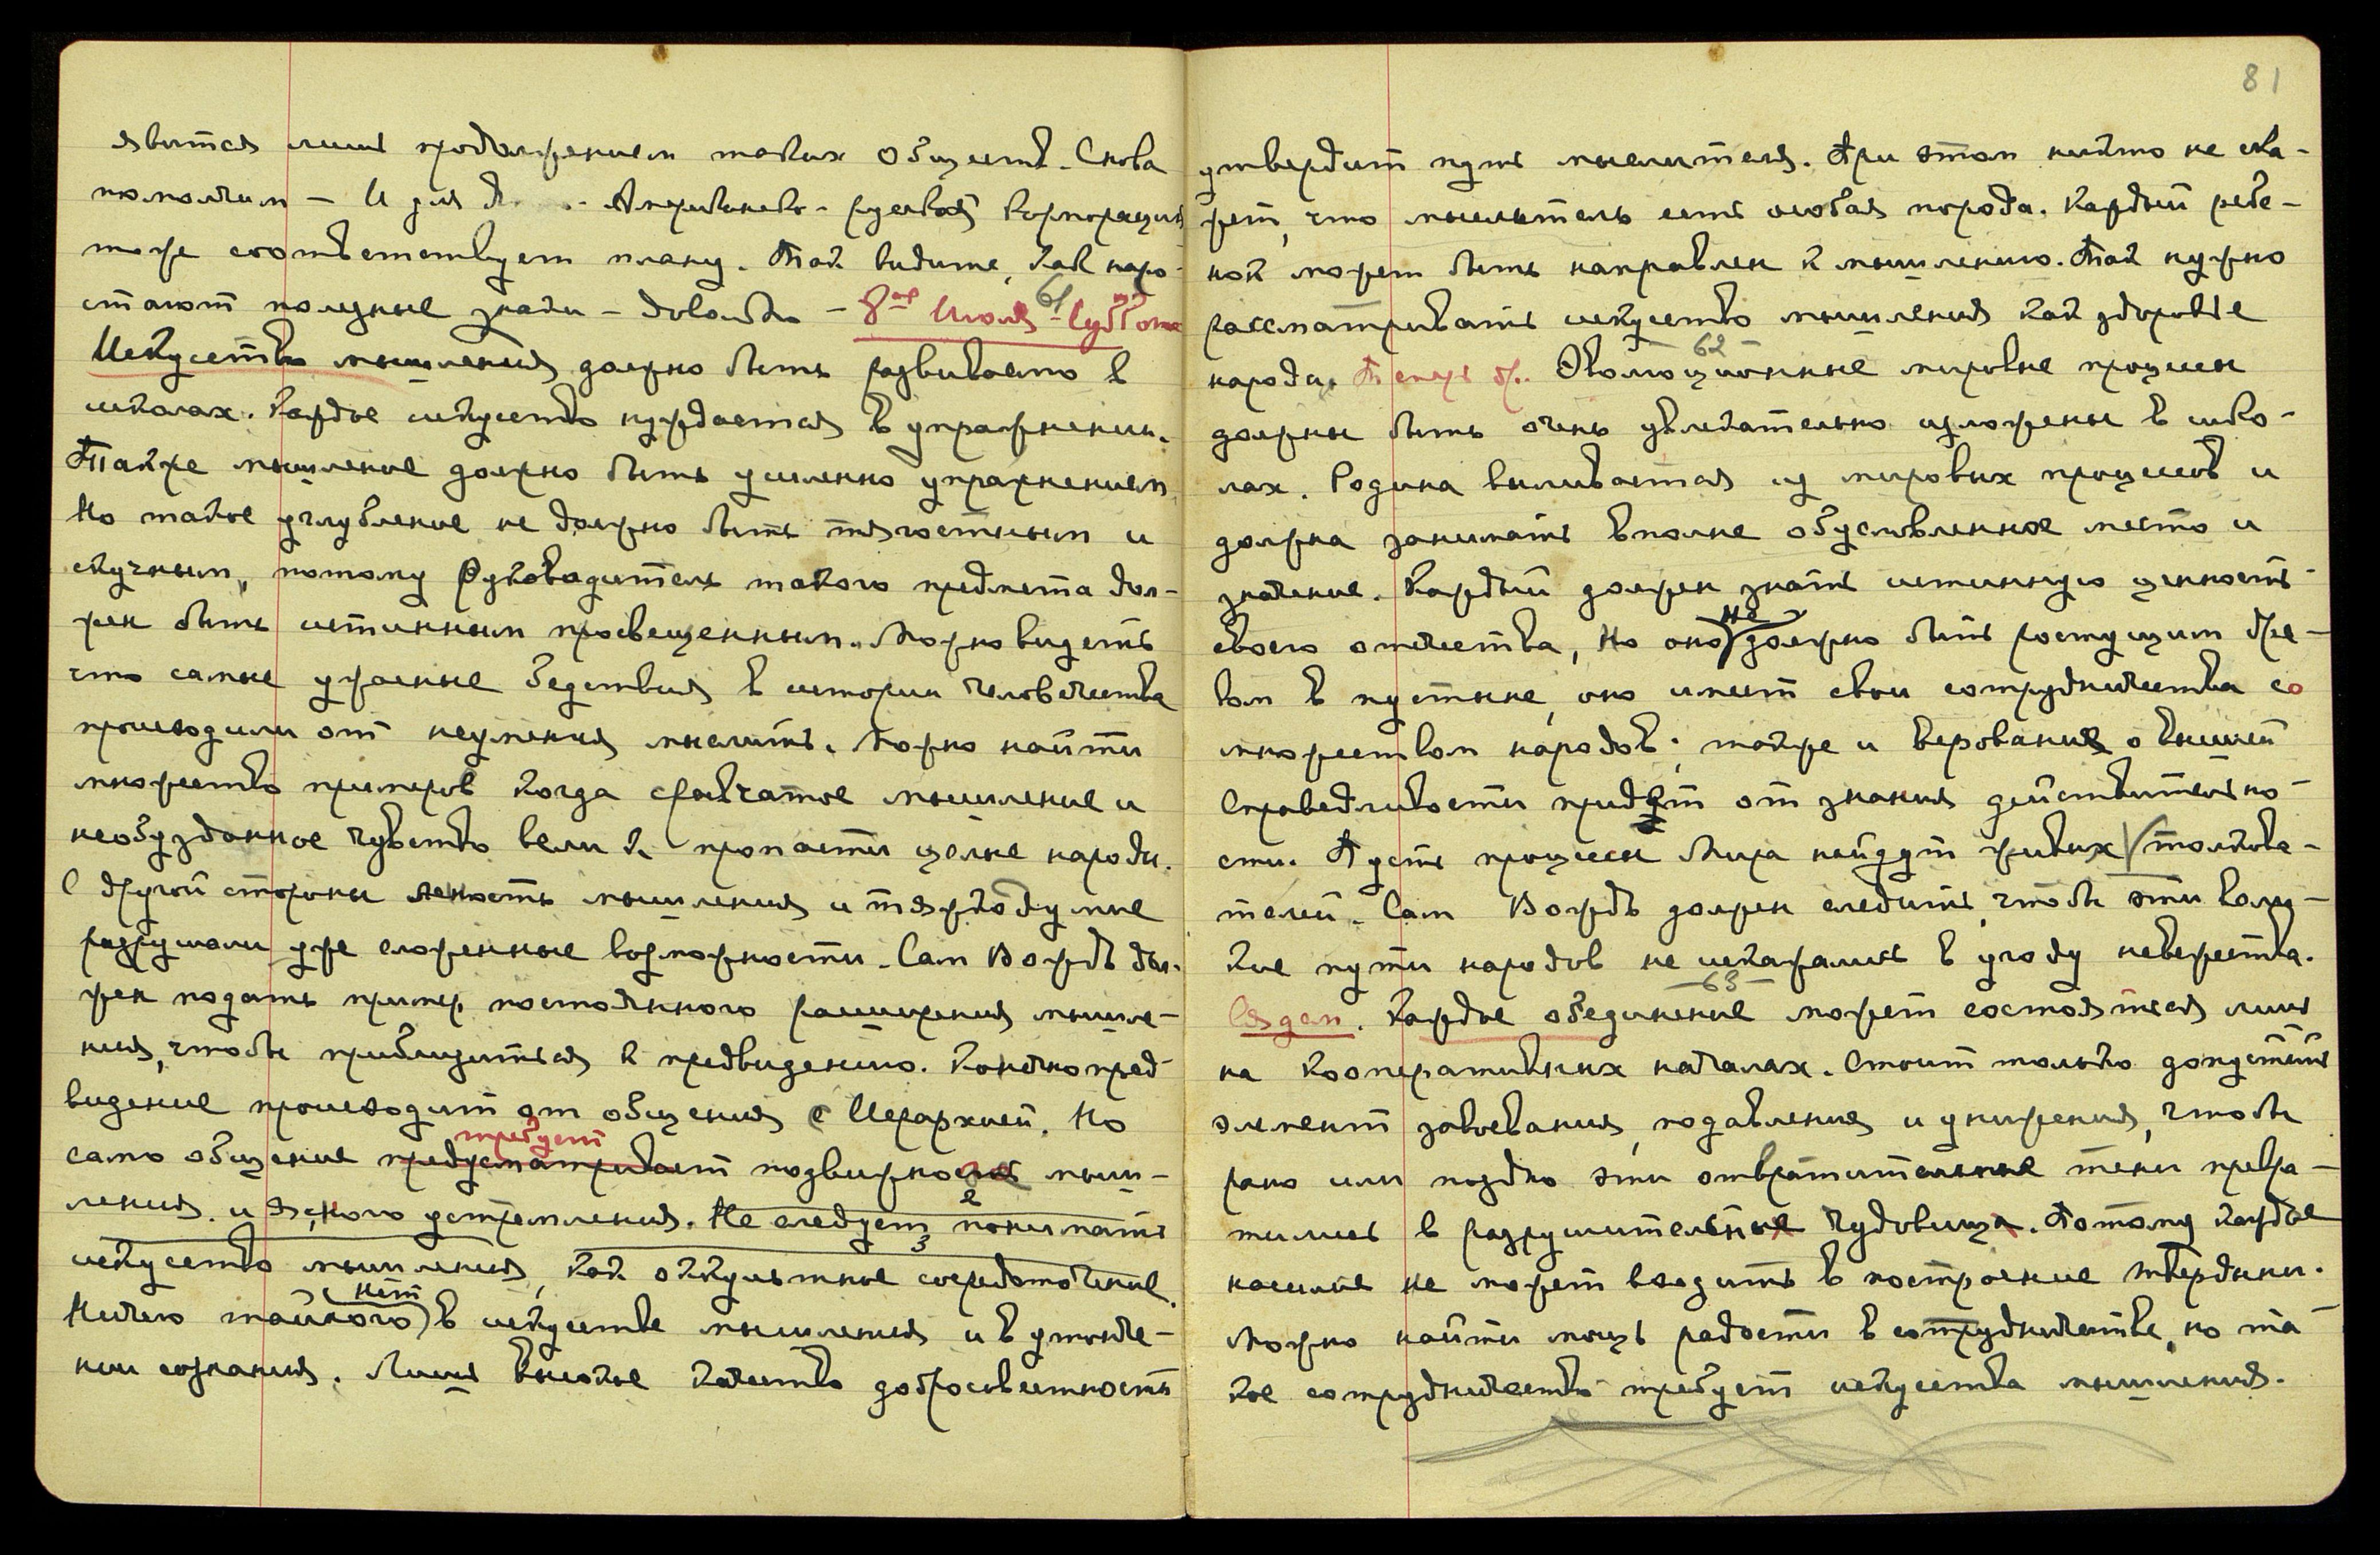 явится лишь продолжением таких Обществ. Снова
помолчим – И для Американско-русская Корпорация
тоже соответствует плану. Так видите, как наро-
стают полезные знаки – довольно – 8-ое Июля – Суббота
61
Искусство мышления должно быть развиваемо в
школах. Каждое искусство нуждается в упражнении.
Также мышление должно быть усилено упражнением,
Но такое углубление не должно быть тягостным и
скучным, потому Руководитель такого предмета дол-
жен быть истинным просвещенным. Можно видеть
что самые ужасные бедствия в истории человечества
происходили от неумения мыслить. Можно найти
множество примеров когда скачатое мышление и
необузданное чувство вели к пропасти целые народы.
С другой стороны леность мышления и тяжкодумие
разрушали уже сложенные возможности. Сам Вождь дол-
жен подать пример постоянного расширения мышле-
ния, чтобы приблизиться к предвидению. Конечно пред-
видение происходит от общения с Иерархией. Но
требует
само общение предусматривает подвижность мыш-
ления и ясного устремления. Не следует понимать
2
3
искусство мышления, как оккультное сосредоточение.
нет
Ничего тайного в искусстве мышления и в утонче-
нии сознания. Лишь высокое качество добросовестность
81
утвердит путь мыслителя. При этом никто не ска-
жет, что мыслитель есть особая порода. Каждый ребе-
нок может быть направлен к мышлению. Так нужно
рассматривать искусство мышления как здоровье
62
народа. Теперь др. Эволюционные мировые процессы
должны быть очень увлекательно изложены в шко-
лах. Родина выливается из мировых процессов и
должна занимать вполне обусловленное место и
значение. Каждый должен знать истинную ценность
не
своего отечества, Но оно должно быть растущим дре-
вом в пустыне, оно имеет свои сотрудничества со
множеством народов; также и верования о высшей
Справедливости придет от знания действительно-
сти. Пусть процессы Мира найдут живых толкова-
телей. Сам Вождь должен следить, чтобы эти вели-
кие пути народов не искажались в угоду невежества.
63
Сядем. Каждое объединение может состояться лишь
на кооперативных началах. Стоит только допустить
элемент завоевания, подавления и унижения, чтобы
рано или поздно эти отвратительные тени превра-
тились в разрушительные чудовища. Потому каждое
насилие не может входить в построение твердыни.
Можно найти мощь радости в сотрудничестве, но та-
кое сотрудничество требует искусства мышления.